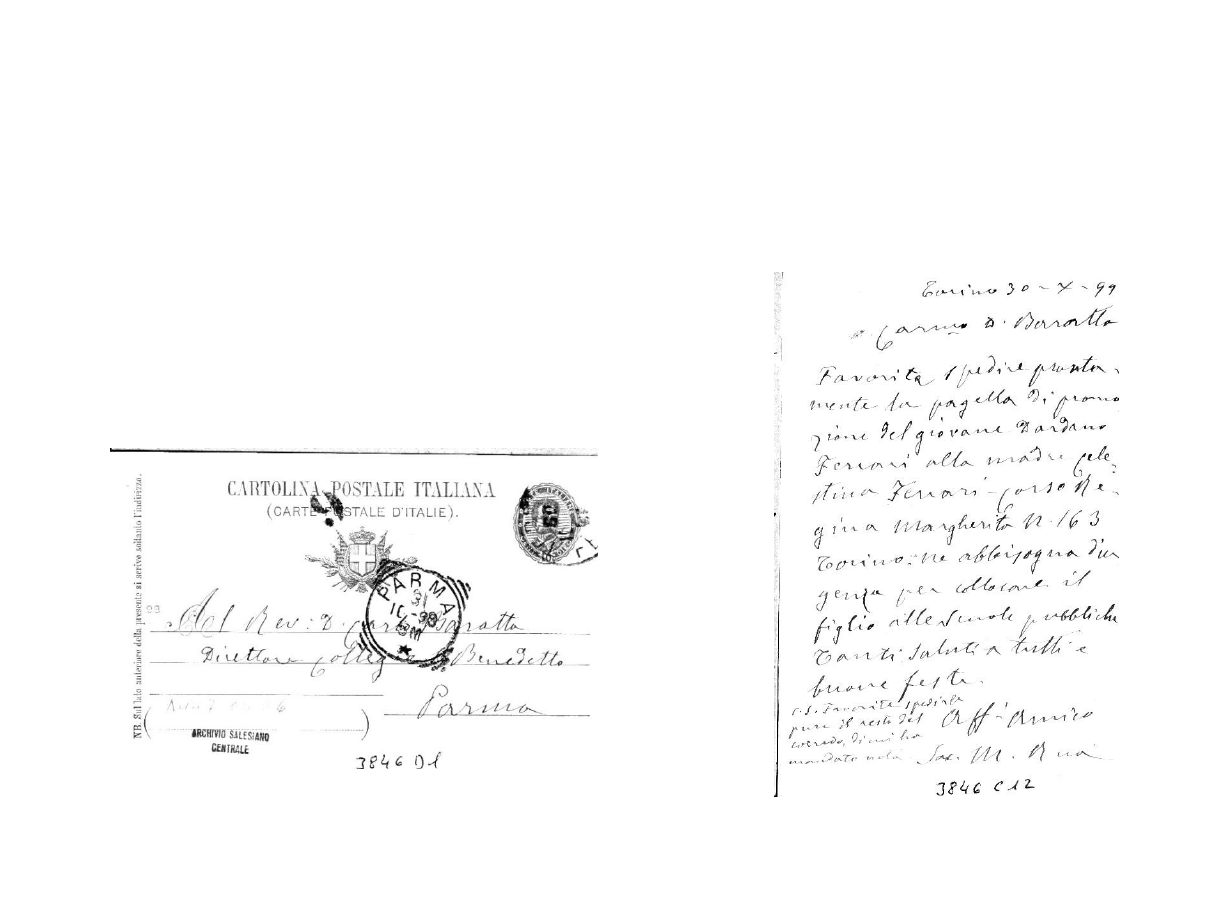 CARTOLINA POSTALE ITALIANA
(CARTE POSTALE D'ITALIE).
NB. Sul lato anteriore della presente si scrive soltanto l'indirizzo.
PARMA
31
10-99
6M
Al Rev: D. Carlo Baratta
Direttore Colleg S. Benedetto
Parma
ARCHIVIO SALESIANO
CENTRALE
3846 D1
Torino 30-X-99
Carmo D. Barratta
Favorita spedire pronta-
mente la pagella di promo
zione del giovane Dardano
Ferrari alla madre Cele-
stina Ferrari-Corso Re-
gina Margherita N. 163
Torino: ne abbisogna d'ur
genza per collocare il
figlio alle scuole pubbliche
Tanti saluti a tutti e
buone feste.
Aff. amico
Sac. M. Rua
P.S. Favorite spedirle
pure il resto del
corredo, di cui ha
mandato nota
3846 C12